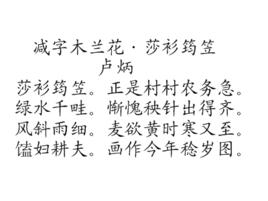 减字木兰花·莎衫筠笠
卢炳
莎衫筠笠。正是村村农务急。
绿水千畦。惭愧秧针出得齐。
风斜雨细。麦欲黄时寒又至。
馌妇耕夫。画作今年稔岁图。